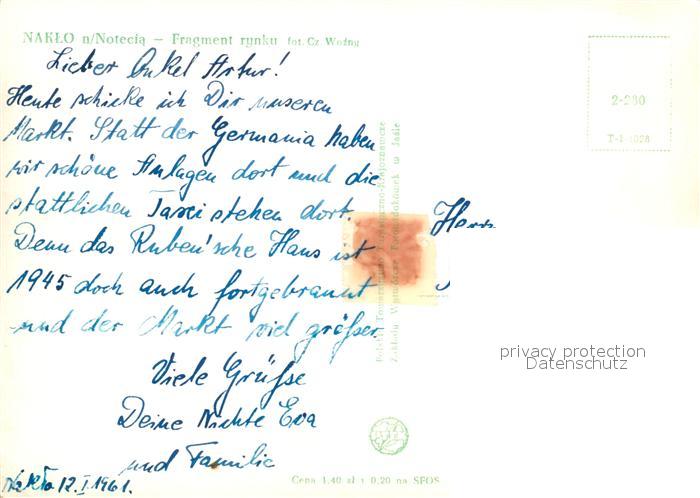 NAKŁO n/Notecią – Fragment rynku fot. Cz Woźny
Lieber Onkel Artur!
Heute schicke ich Dir unseren
Markt. Statt der Germania haben
wir schöne Anlagen dort und die
stattlichen Taxi stehen dort.
Denn das Ruben'sche Haus ist
1945 doch auch fortgebrannt
und der Markt viel größer.
Viele Grüße
Deine Nichte Eva
und Familie
Nakło 12.I.1961.
Herrn
T-1
Cena 1,40 zł + 0,20 na SFOS
privacy protection
Datenschutz